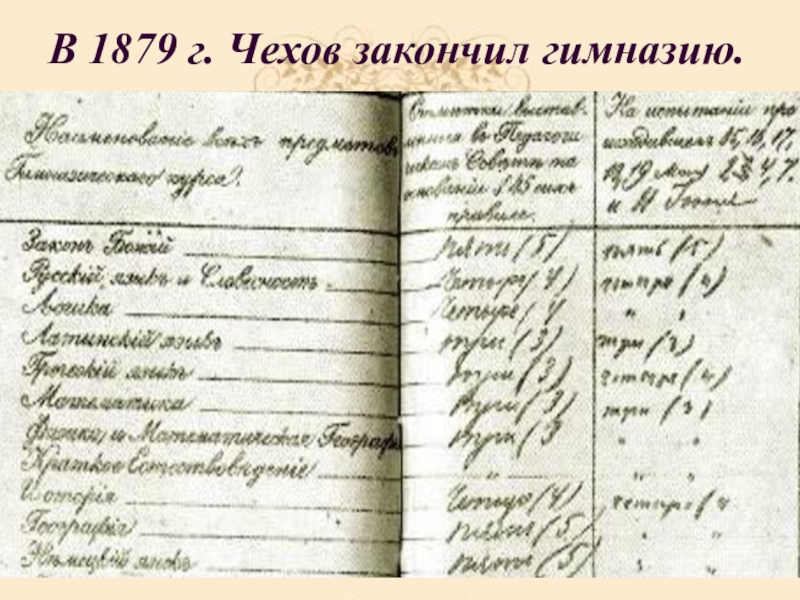 В 1879 г. Чехов закончил гимназию.
Наименованіе всѣхъ предметовъ
Гимназическаго курса.
Отмѣтки выстав-
въ Педагоги
ческомъ Совѣтѣ на
основаніи § 45
правилъ.
На испытаніи про
исходившемъ 15, 16, 17,
19 Мая 2, 4, 7.
и
Законъ Божій пять (5) пять (5)
Русскій языкъ и Словесность Четыре (4) четыре (4)
Логика Четыре (4 " "
Латинскій языкъ три (3) три (3)
Греческій языкъ три (3) четыре (4)
Математика три (3) три (3)
Физика и Математическая Географ три (3 " "
Краткое Естествовѣденіе "
Исторія Четыре (4) четыре (4
Географія пять (5) " "
Нѣмецкій языкъ пять (5) " "